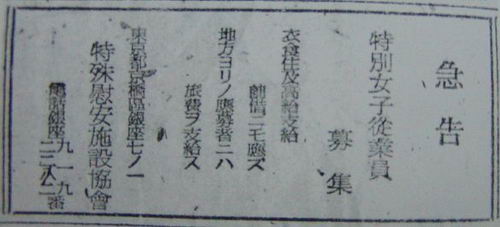 急告
特別女子従業員
募集
衣食住及高給支給
前借ニモ應ズ
地方ヨリノ應募者ニハ
旅費ヲ支給ス
東京都京橋區銀座七ノ一
特殊慰安施設協會
電話銀座九一九番
二二八二